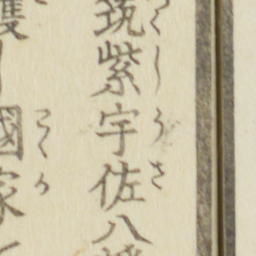 筑紫宇佐八
つくしうさ
護し國家
こくか